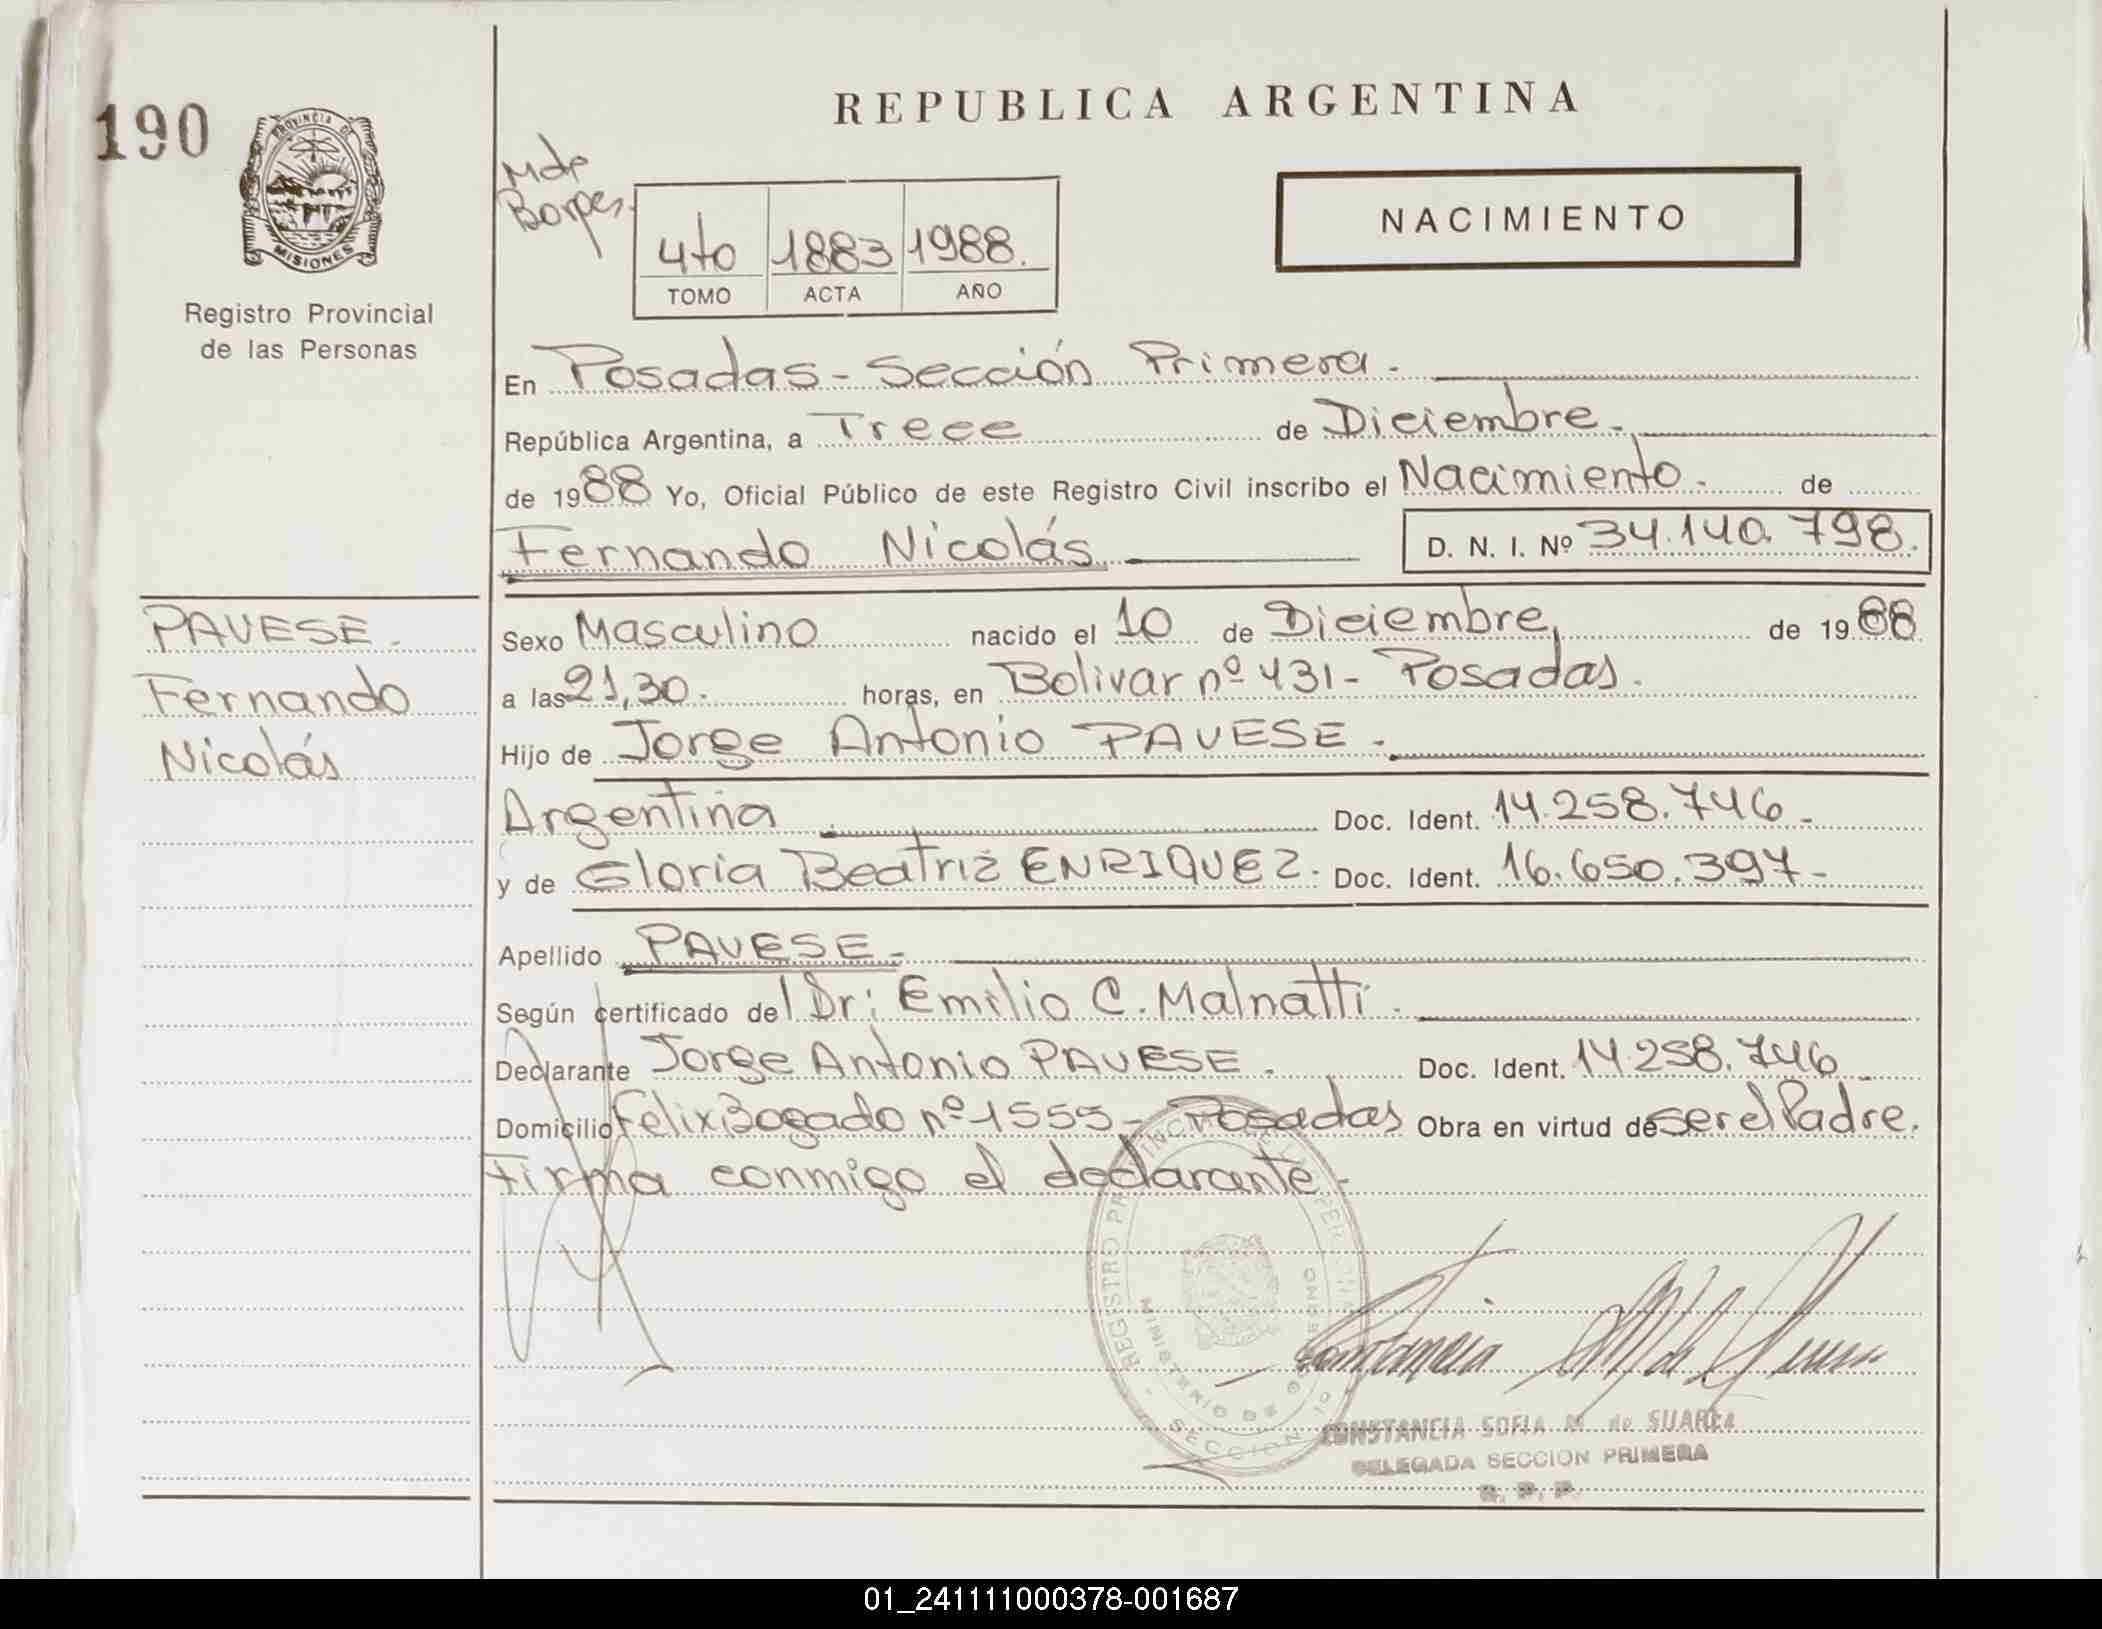 190
PROVINCIA DE
MISIONES
Registro Provincial
de las Personas
REPUBLICA ARGENTINA
NACIMIENTO
4to 1883 1988.
TOMO ACTA AÑO
En Posadas - Sección Primera.
República Argentina, a Trece de Diciembre.
de 1988 Yo, Oficial Público de este Registro Civil inscribo el Nacimiento. de
Fernando Nicolás D. N. I. Nº 34.140.798.
PAVESE.
Fernando
Nicolás
Sexo Masculino nacido el 10 de Diciembre, de 1988
a las 21,30. horas, en Bolivar nº 431 - Posadas.
Hijo de Jorge Antonio PAVESE.
Argentina Doc. Ident. 14.258.746 -
y de Gloria Beatriz ENRIQUEZ. Doc. Ident. 16.650.397 -
Apellido PAVESE -
Según certificado del Dr: Emilio C. Malnatti.
Declarante Jorge Antonio PAVESE. Doc. Ident. 14.258.746 -
Domicilio Felix Bogado nº 1555 - Posadas Obra en virtud de ser el Padre.
Firma conmigo el declarante -
MINISTERIO DE GOBIERNO
SECCION 1º
CONSTANCIA SOFIA M. de SUAREZ
DELEGADA SECCION PRIMERA
R. P. P.
01_241111000378-001687